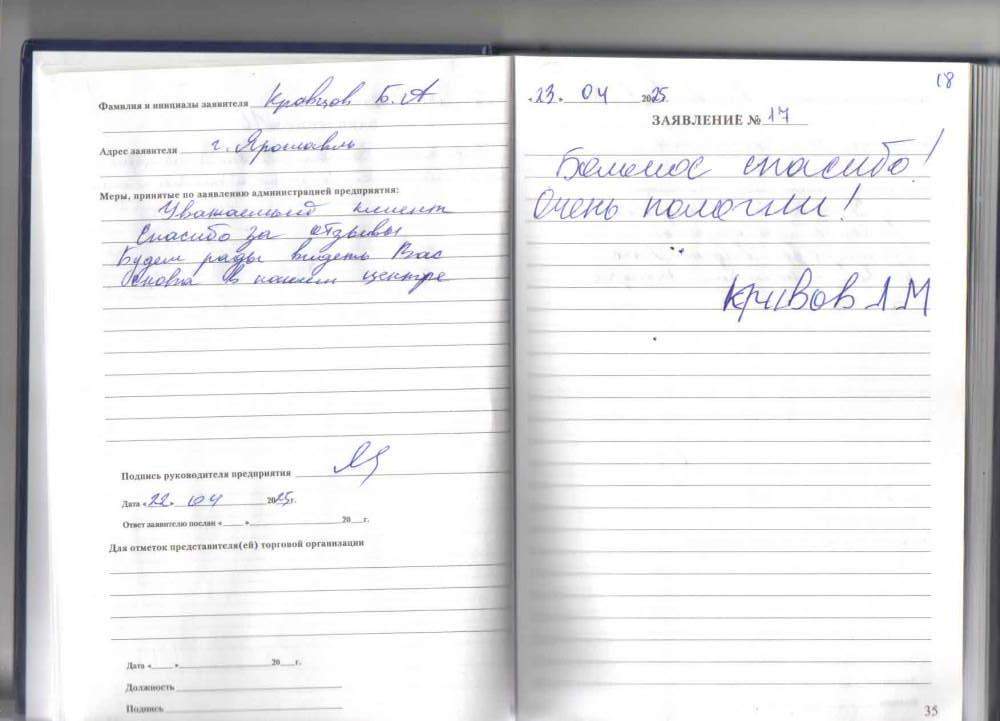 Фамилия и инициалы заявителя Кравцов Б.А
Адрес заявителя г. Ярославль
Меры, принятые по заявлению администрацией предприятия:
Уважаемый клиент
Спасибо за отзывы
Будем рады видеть Вас
снова в нашем центре
Подпись руководителя предприятия
Дата «22» 04 2025г.
Ответ заявителю послан «___» ___ 20__г.
Для отметок представителя(ей) торговой организации
Дата «___» ___ 20__г.
Должность
Подпись
18
«23» 04 2025
ЗАЯВЛЕНИЕ № 17
спасибо!
Очень помогли!
Кривов Л М
35